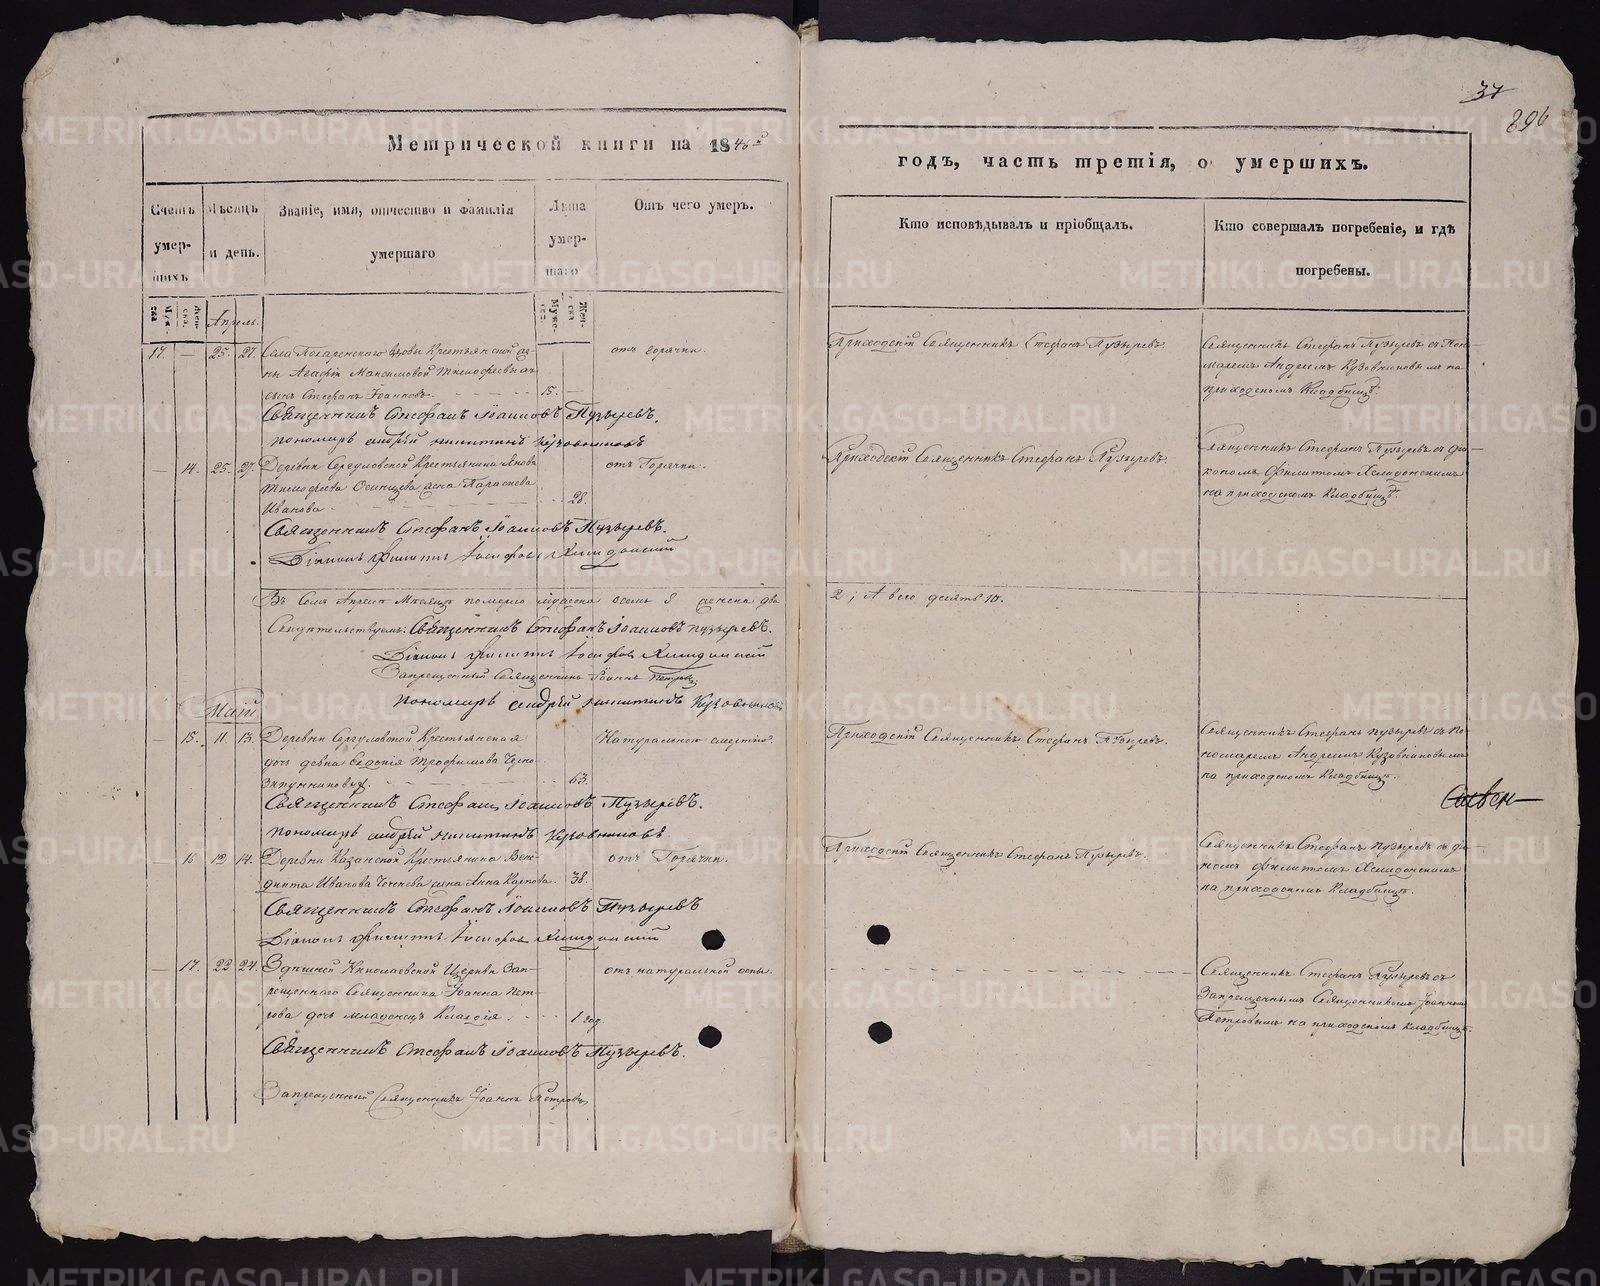 37
896
Метрической книги на 1846й
годъ, часть третія, о умершихъ.
Счетъ умер-шихъ
Мѣсяцъ и день.
Званіе, имя, отчество и фамилія умершаго
Лѣта умер-шаго
Отъ чего умеръ.
Кто исповѣдывалъ и пріобщалъ.
Кто совершалъ погребеніе, и гдѣ погребены.
Муже-ска
Жен-ска.
Муже-ска
Жен-ска
Апрель.
17. — 25. 27. Села вдовы Крестьянской же-
ны Агафіи Максимовой
сынъ Стефанъ Іоанновъ 15. —
отъ горячки.
Приходскій Священникъ Стефанъ Пузыревъ.
Священникъ Стефанъ Пузыревъ съ Поно-
маремъ Андреемъ Кузовниковымъ на
приходскомъ Кладбищѣ.
Священникъ Стефанъ Іоанновъ Пузыревъ.
пономарь андрей никитинъ кузовниковъ
— 14. 25. 27. Деревни Сергуловской Крестьянина Якова
Тимофѣева жена Параскева
Иванова 28.
отъ Горячки.
Приходскій Священникъ Стефанъ Пузыревъ.
Священникъ Стефанъ Пузыревъ съ діа-
кономъ Филиппомъ
на приходскомъ Кладбищѣ.
Священникъ Стефанъ Іоанновъ Пузыревъ.
Діаконъ Филиппъ Іосифовъ
Въ семъ Апрелѣ Мѣсяцѣ померло мужеска осемь 8 женска два
2; А всего десять 10.
Свидѣтельствуемъ: Священникъ Стефанъ Іоанновъ пузыревъ.
Діаконъ Филиппъ Іосифовъ
Запрещенный Священникъ Іоаннъ Петровъ
пономарь андрей никитинъ Кузовниковъ
Май
— 15. 11. 13. Деревни Сергуловской Крестьянская
дочь девка Трофимова
63.
Натуральною смертію.
Приходскій Священникъ Стефанъ Пузыревъ.
Священникъ Стефанъ пузыревъ съ По-
номаремъ Андреемъ Кузовниковымъ
на приходскомъ Кладбищѣ.
Священникъ Стефанъ Іоанновъ Пузыревъ.
пономарь андрей никитинъ Кузовниковъ
— 16 12 14. Деревни Казанской Крестьянина Вене-
дикта Иванова жена Анна Карпова. 38.
отъ Горячки.
Приходскій Священникъ Стефанъ Пузыревъ.
Священникъ Стефанъ пузыревъ съ діа-
кономъ Филиппомъ
на приходскомъ Кладбищѣ.
Священникъ Стефанъ Іоанновъ Пузыревъ
Діаконъ Филиппъ Іосифовъ
— 17. 22 24. Здѣшней Николаевской Церкви Зап-
рещеннаго Священника Іоанна Пет-
рова дочь младенецъ Клавдія. 1 год
отъ натуральной оспы.
Священникъ Стефанъ Пузыревъ съ
Запрещеннымъ Священникомъ Іоанномъ
Петровымъ на приходскомъ Кладбищѣ.
Священникъ Стефанъ Іоанновъ Пузыревъ.
Запрещенный Священникъ Іоаннъ Петровъ
METRIKI.GASO-URAL.RU